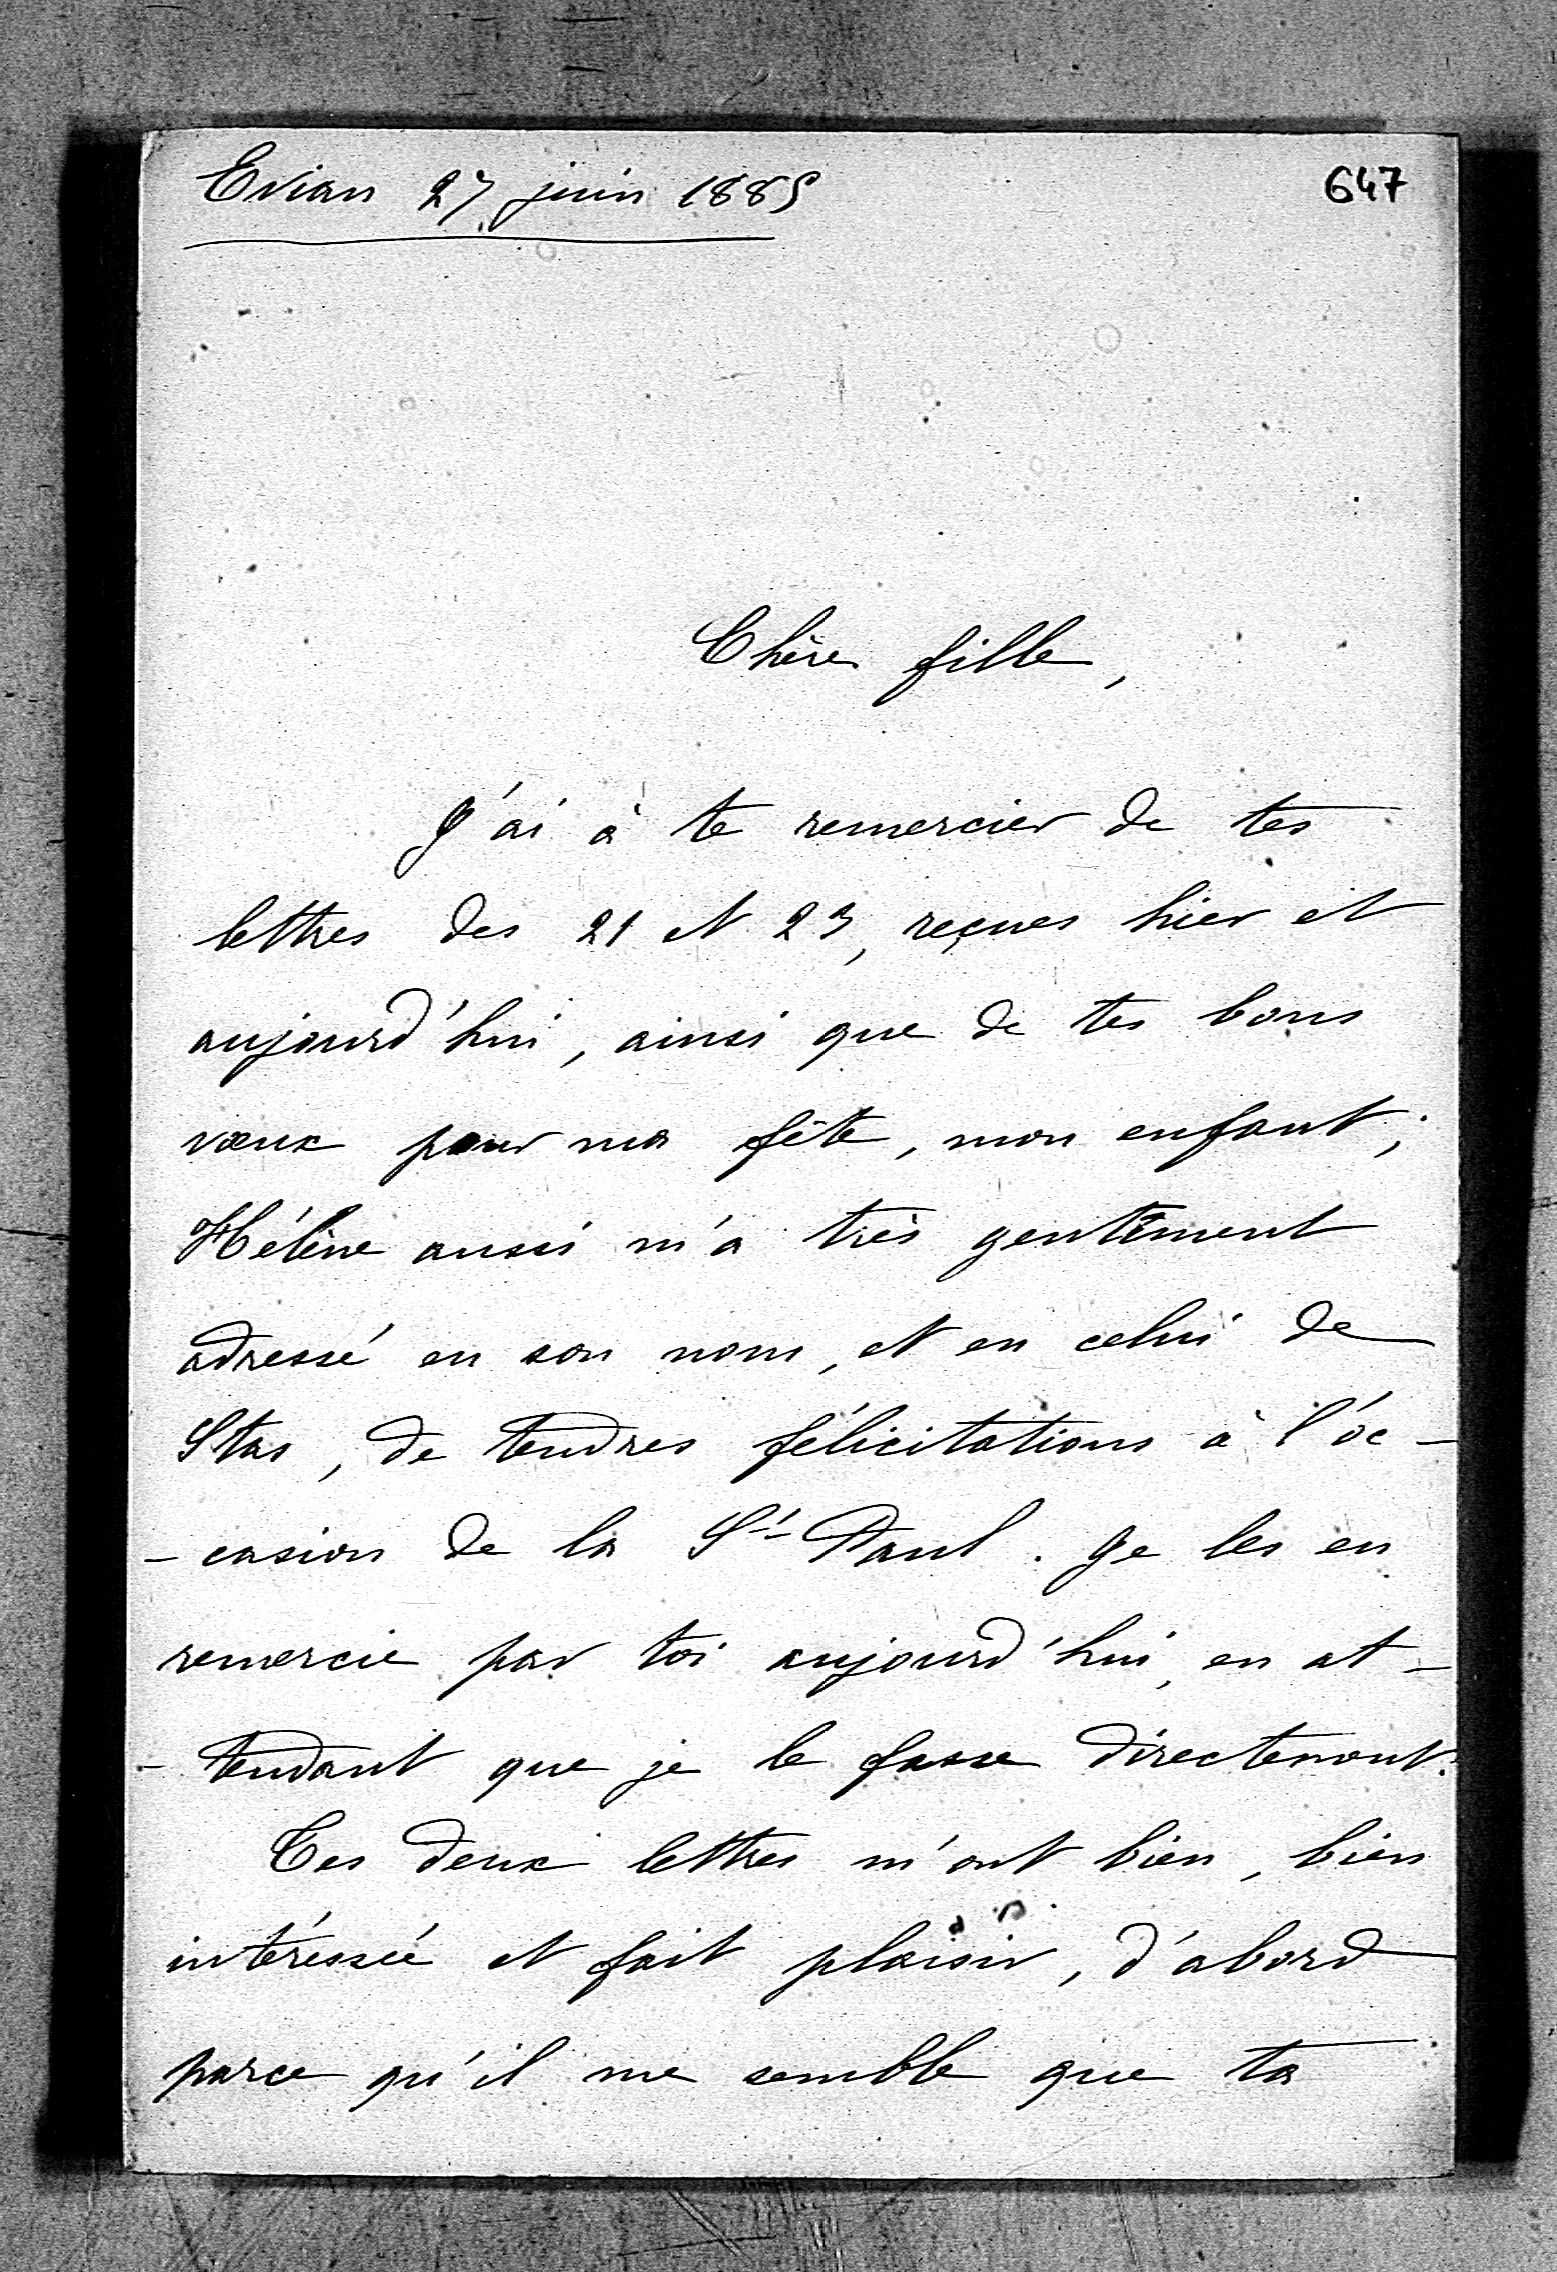 Evian 27 juin 1885
647
Chère fille,
J'ai à te remercier de tes
lettres des 21 et 23, reçues hier et
aujourd'hui, ainsi que de tes bons
vœux pour ma fête, mon enfant;
Hélène aussi m'a très gentiment
adressé en son nom, et en celui de
Stas, de tendres félicitations à l'oc-
-casion de la St Paul. Je les en
remercie par toi aujourd'hui, en at-
-tendant que je le fasse directement.
Tes deux lettres m'ont bien, bien
intéressée et fait plaisir, d'abord
parce qu'il me semble que ta